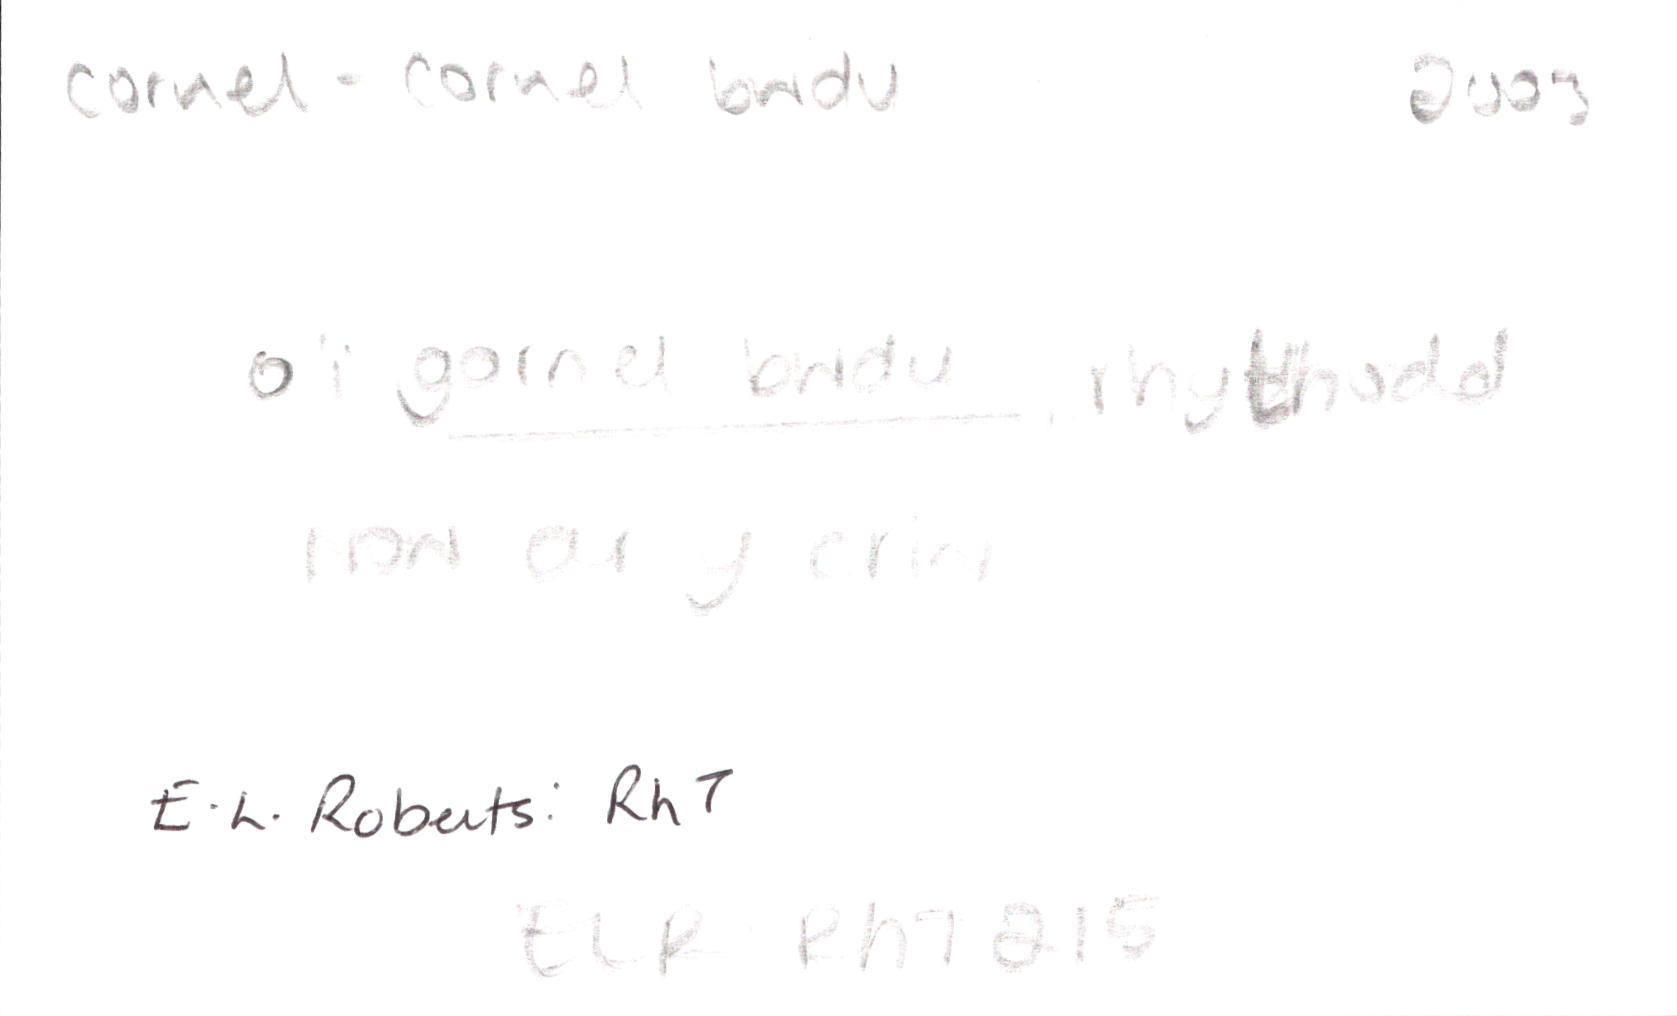 cornel - cornel bwdu
o'i gornel bwdu, rhythodd
Non ar y criw
E.L. Roberts: RhT
ELR RhT 215